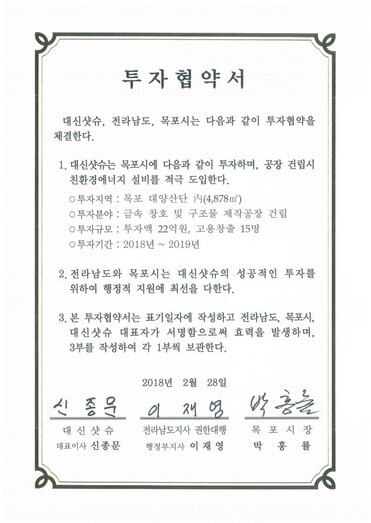 투자협약서
대신샷슈, 전라남도, 목포시는 다음과 같이 투자협약을
체결한다.
1. 대신샷슈는 목포시에 다음과 같이 투자하며, 공장 건립시
친환경에너지 설비를 적극 도입한다.
○투자지역 : 목포 대양산단 內(4,878㎡)
○투자분야 : 금속 창호 및 구조물 제작공장 건립
○투자규모 : 투자액 22억원, 고용창출 15명
○투자기간 : 2018년 ~ 2019년
2. 전라남도와 목포시는 대신샷슈의 성공적인 투자를
위하여 행정적 지원에 최선을 다한다.
3. 본 투자협약서는 표기일자에 작성하고 전라남도, 목포시,
대신샷슈 대표자가 서명함으로써 효력을 발생하며,
3부를 작성하여 각 1부씩 보관한다.
2018년 2월 28일
신종문 이재영 박홍률
대신샷슈 전라남도지사 권한대행 목포시장
대표이사 신종문 행정부지사 이재영 박홍률